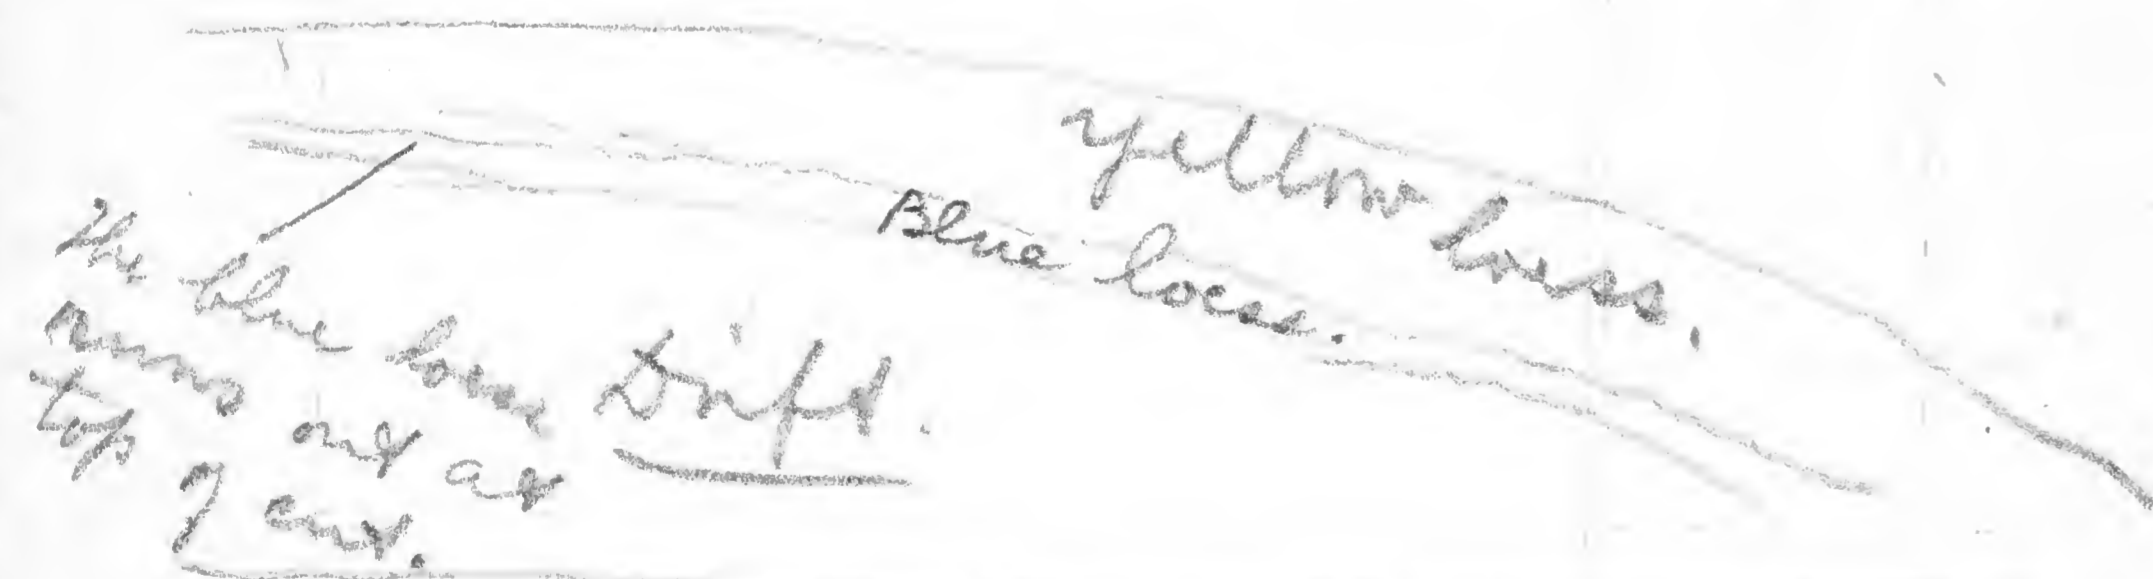 Yellow loess.
Blue loess.
The blue loess
runs out at
top of cut.
Drift.